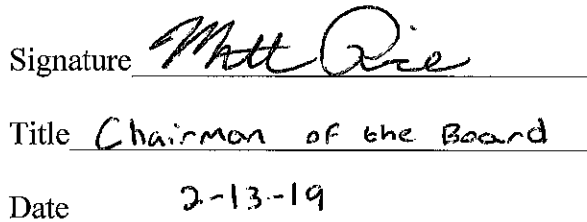 Signature Matt Rice
Title Chairman of the Board
Date 2-13-19